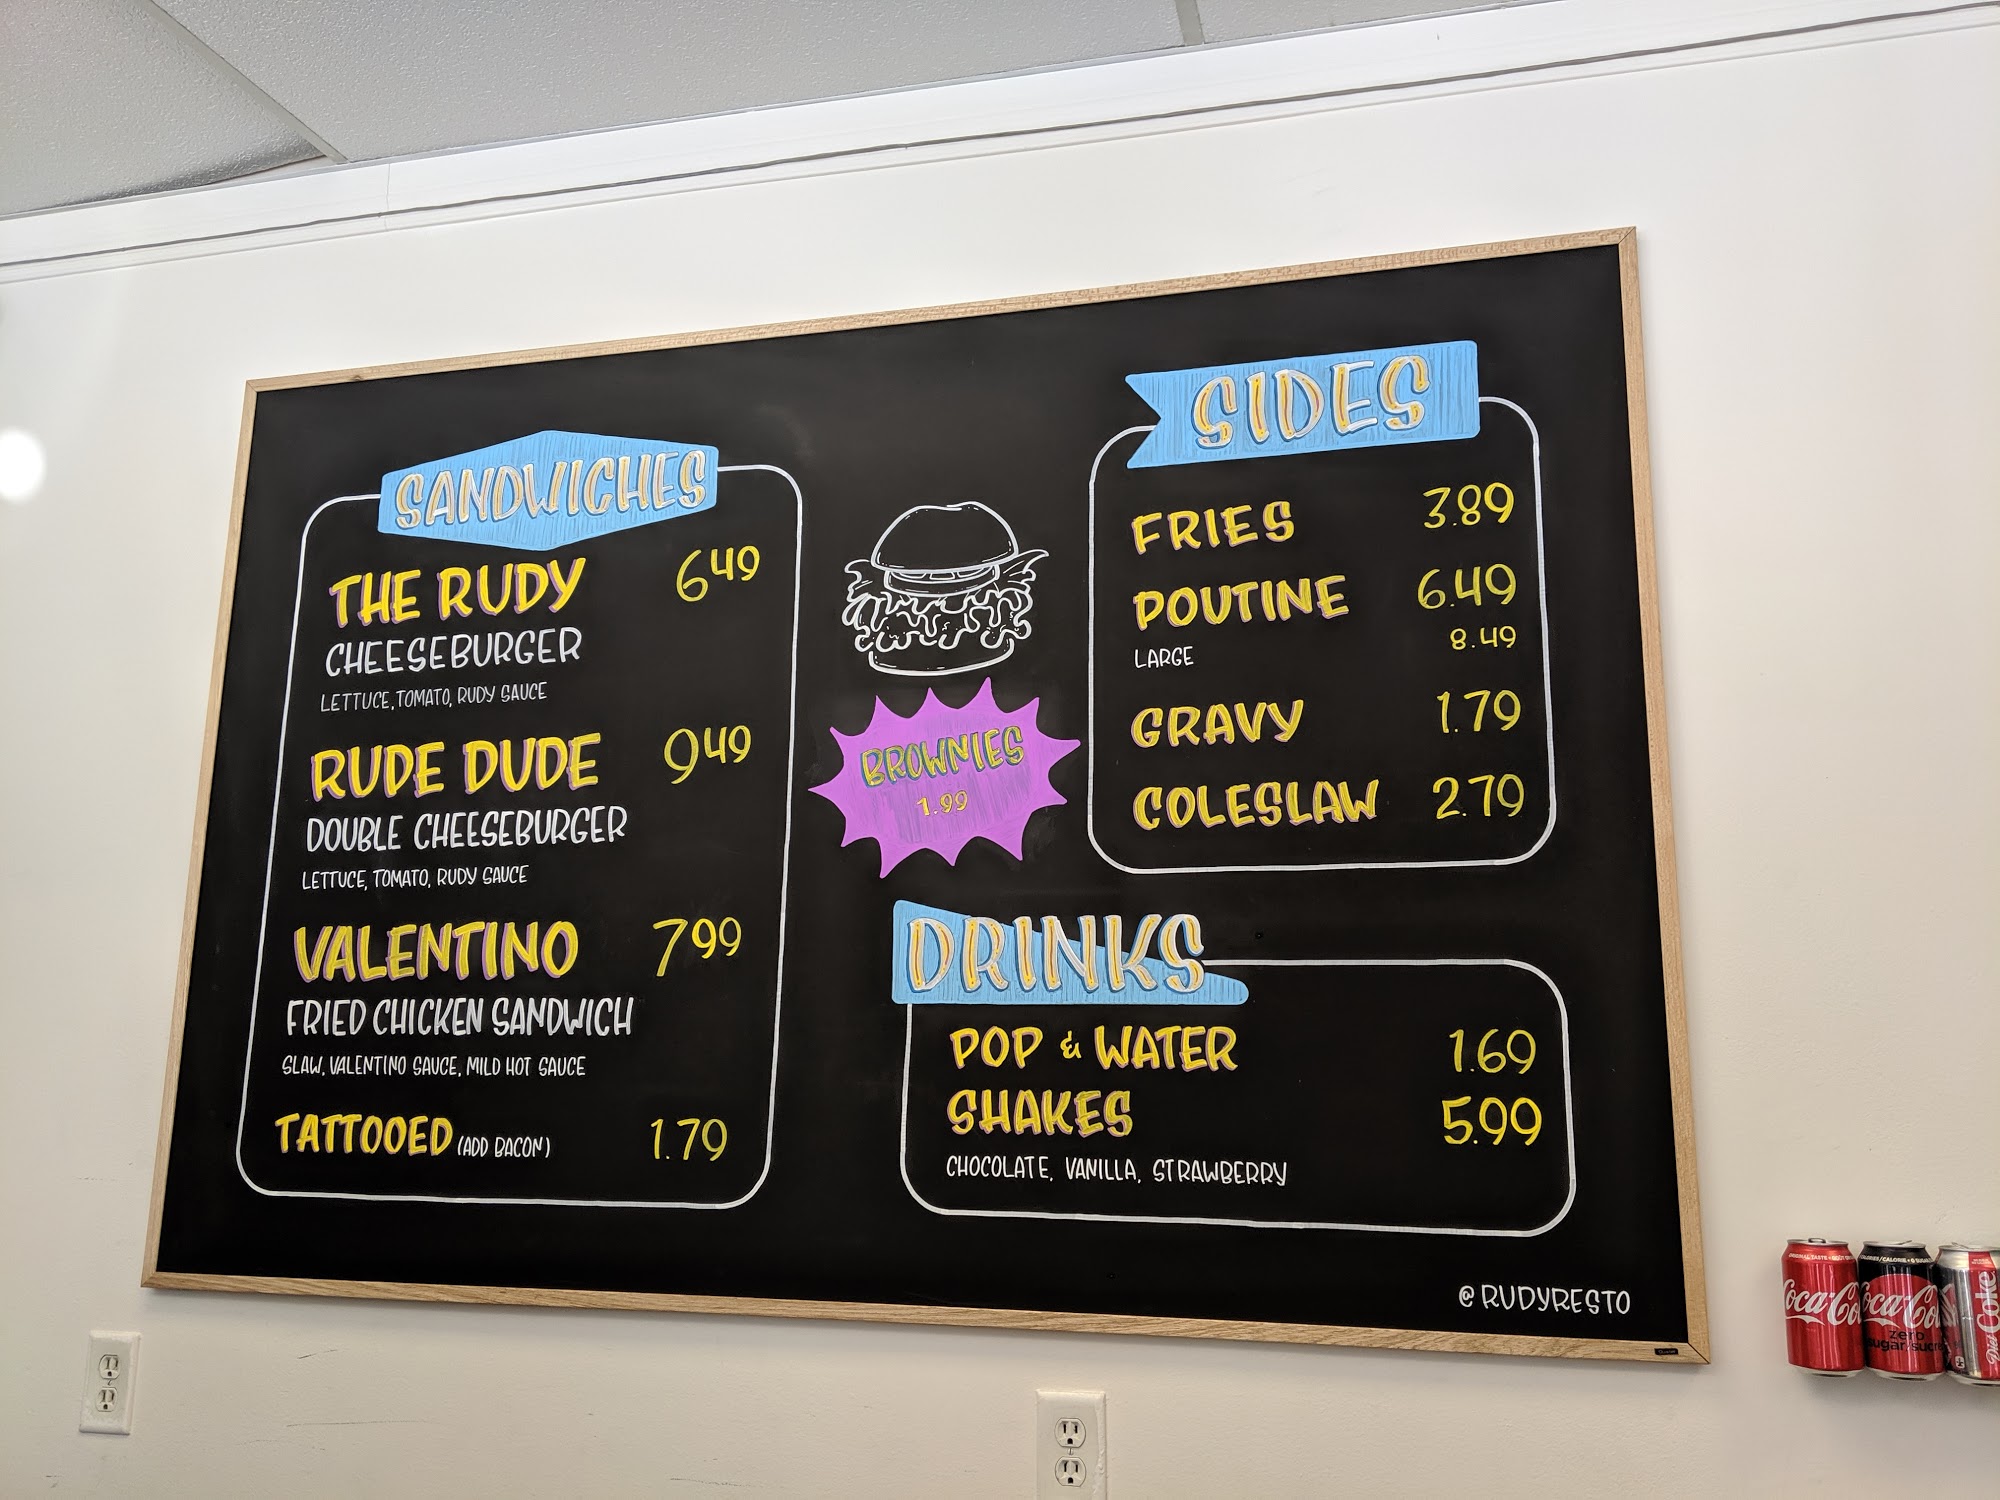 SANDWICHES
THE RUDY 6 49
CHEESEBURGER
LETTUCE, TOMATO, RUDY SAUCE
RUDE DUDE 9 49
DOUBLE CHEESEBURGER
LETTUCE, TOMATO, RUDY SAUCE
VALENTINO 7 99
FRIED CHICKEN SANDWICH
SLAW, VALENTINO SAUCE, MILD HOT SAUCE
TATTOOED (ADD BACON) 1.79
BROWNIES
1.99
SIDES
FRIES 3.89
POUTINE 6.49
LARGE 8.49
GRAVY 1.79
COLESLAW 2.79
DRINKS
POP & WATER 1.69
SHAKES 5.99
CHOCOLATE, VANILLA, STRAWBERRY
@RUDYRESTO
Coca-Co
Coca-Co
zero
sugar/sucre
Diet Coke